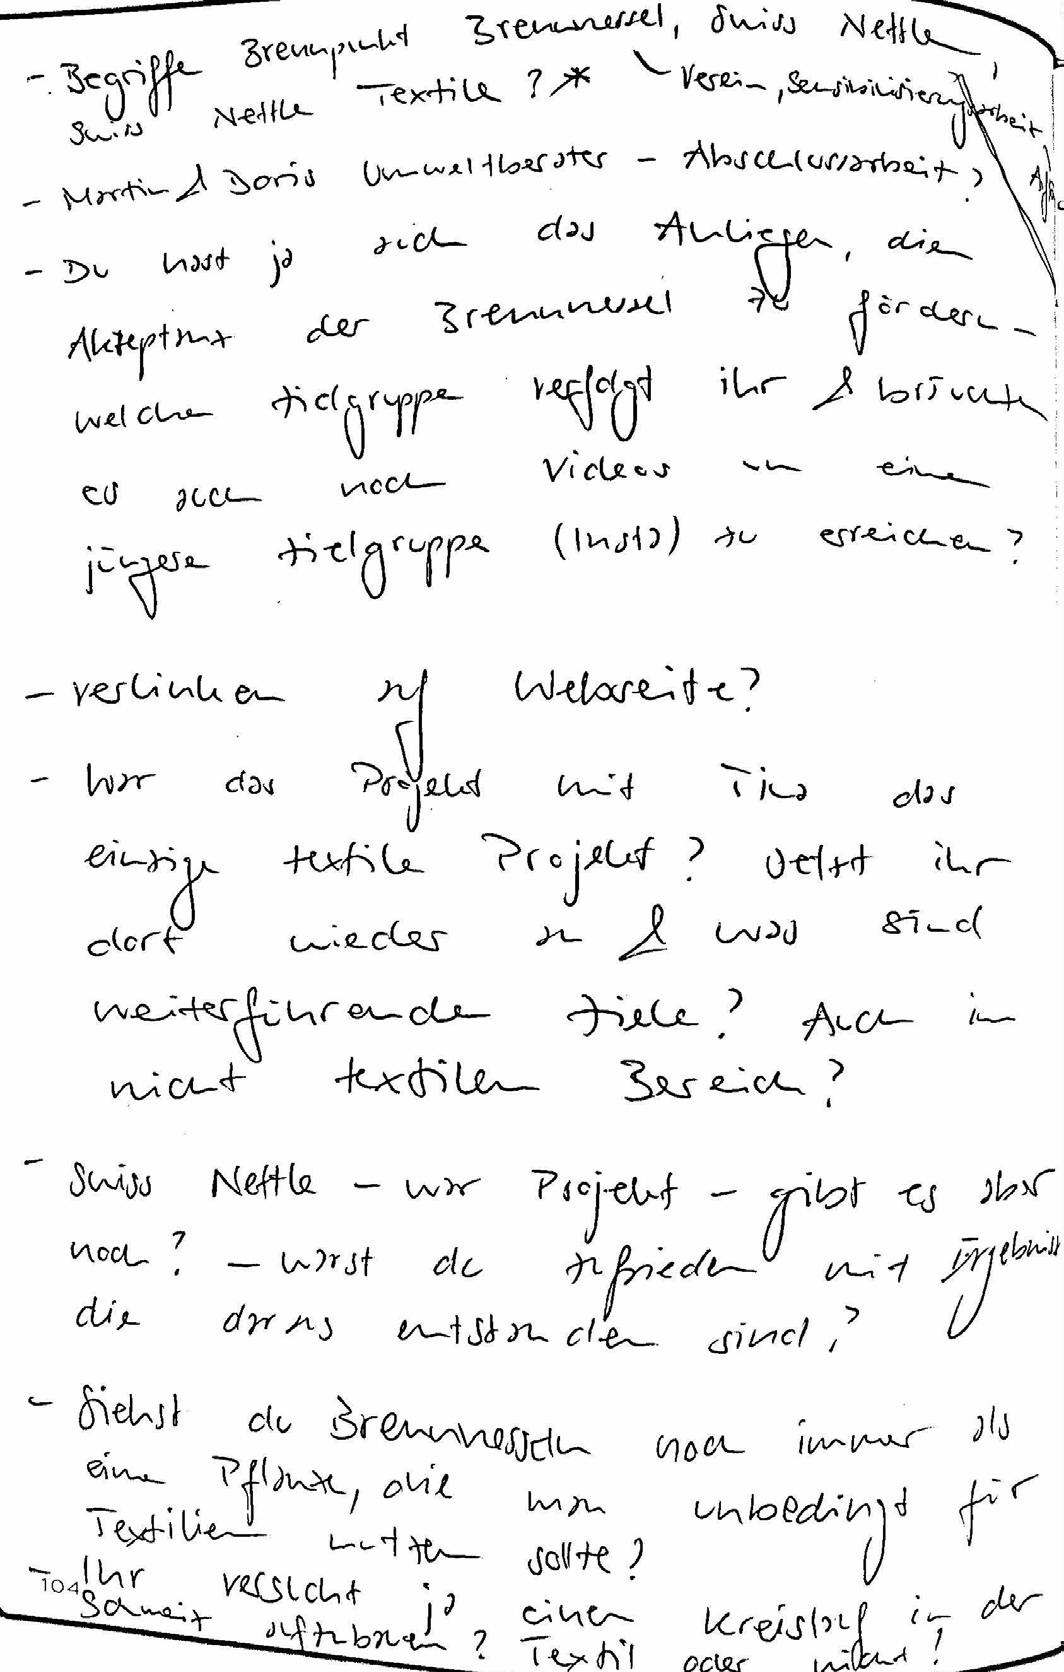 - Begriffe Brennpunkt Brennnessel, Swiss Nettle,
Swiss Nettle Textile? * Verein, Sensibilisierungsarbeit
- Martin & Doris Umweltberater - Abschlussarbeit?
- Du hast ja auch das Anliegen, die
Akzeptanz der Brennnessel zu fördern -
welche Zielgruppe verfolgt ihr & bräuchte
es auch noch Videos um eine
jüngere Zielgruppe (Insta) zu erreichen?
- verlinken auf Webseite?
- War das Projekt mit Tina das
einzige textile Projekt? Setzt ihr
dort wieder an & was sind
weiterführende Ziele? Auch im
nicht textilen Bereich?
- Swiss Nettle - war Projekt - gibt es aber
noch? - warst du zufrieden mit Ergebniss
die daraus entstanden sind?
- Siehst du Brennnesseln noch immer als
eine Pflanze, die man unbedingt für
Textilien nutzen sollte?
104
- Ihr versucht ja einen Kreislauf in der
Schweiz aufzubauen? Textil oder nicht?